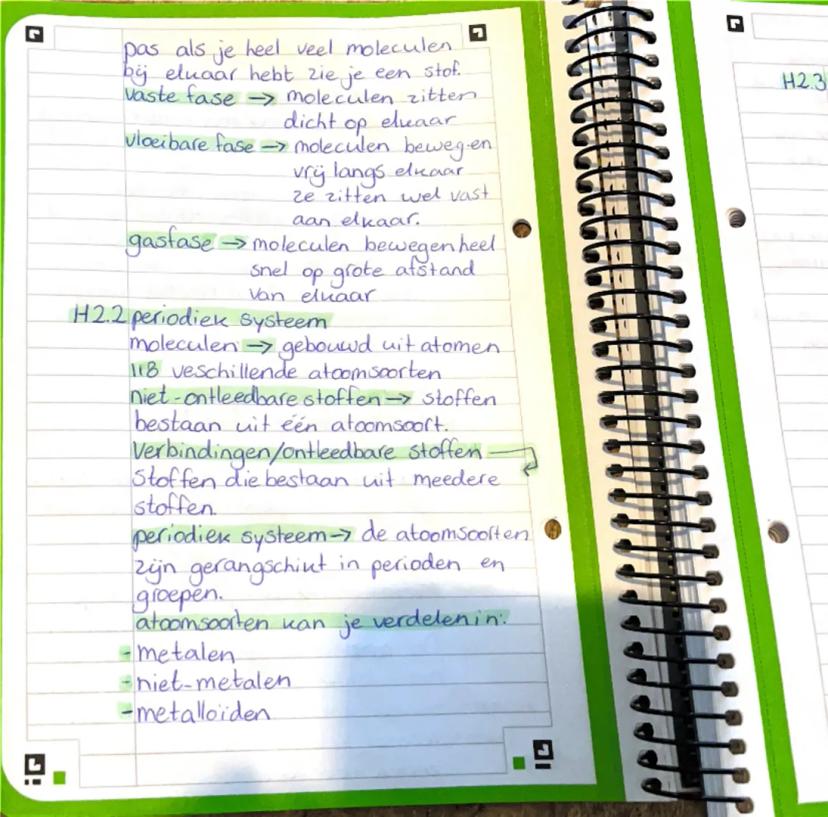 pas als je heel veel moleculen
bij elkaar hebt zie je een stof.
vaste fase → moleculen zitten
dicht op elkaar
vloeibare fase → moleculen bewegen
vrij langs elkaar
ze zitten wel vast
aan elkaar.
gasfase → moleculen bewegen heel
snel op grote afstand
van elkaar
H2.2 periodiek systeem
moleculen → gebouwd uit atomen
118 veschillende atoomsoorten
niet-ontleedbare stoffen → stoffen
bestaan uit één atoomsoort.
Verbindingen/ontleedbare stoffen
stoffen die bestaan uit meedere
stoffen.
periodiek systeem → de atoomsoorten
zijn gerangschikt in perioden en
groepen.
atoomsoorten kan je verdelen in:
- metalen
- niet-metalen
- metalloïden
H2.3